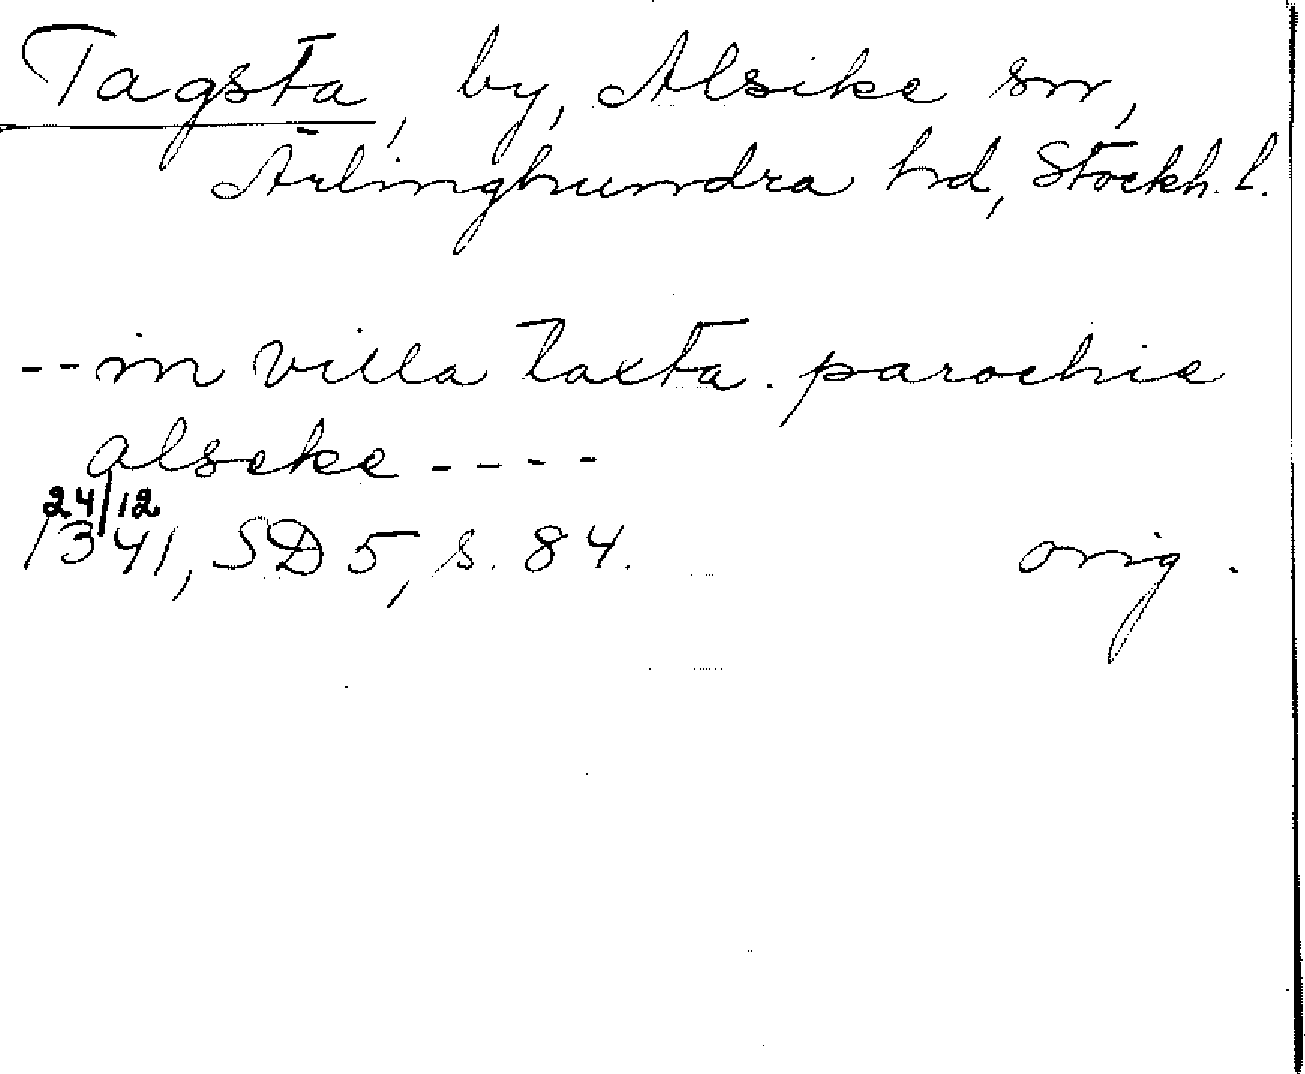 Tagsta, by, Alsike sn,
Ärlinghundra hd, Stockh. l.
-- in villa taxta. parochie
alseke ----
24/12
1341, SD 5, s. 84. orig.